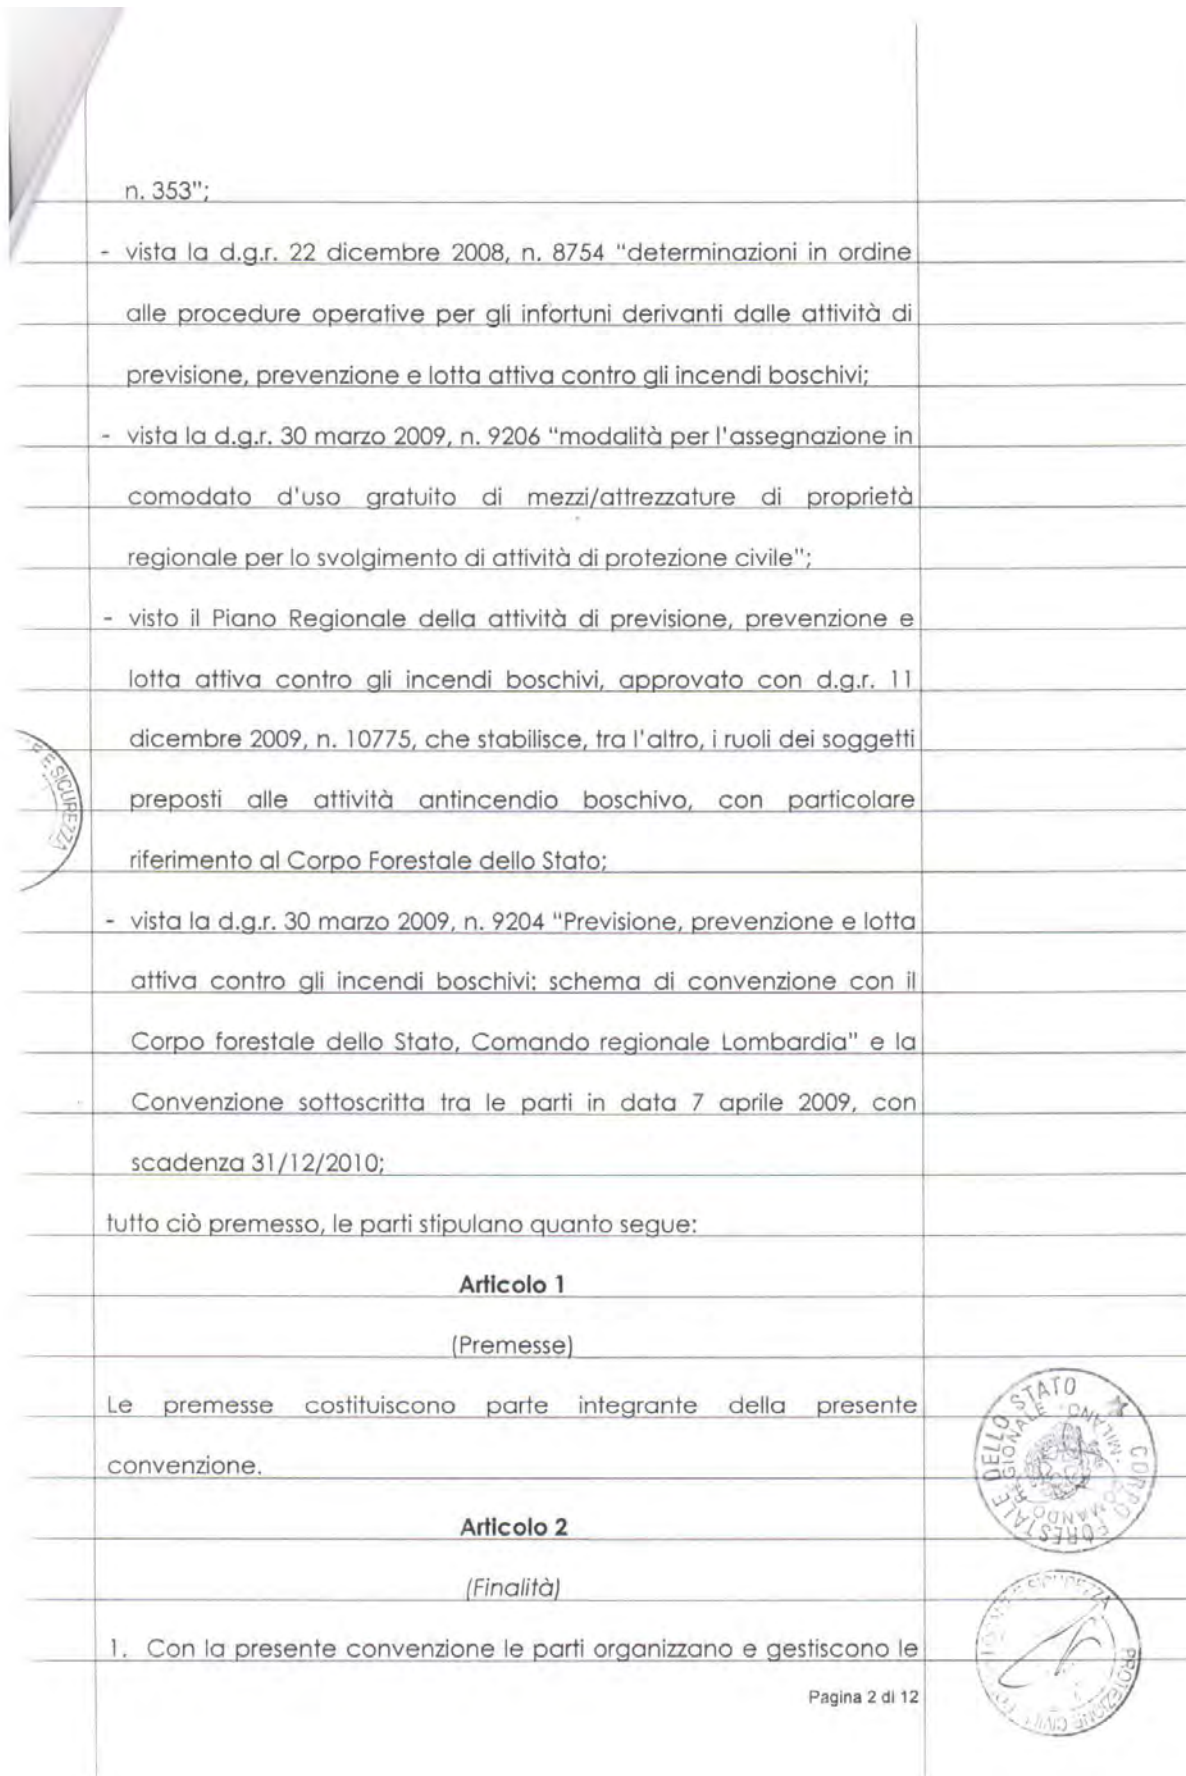 n. 353";
- vista la d.g.r. 22 dicembre 2008, n. 8754 "determinazioni in ordine
alle procedure operative per gli infortuni derivanti dalle attività di
previsione, prevenzione e lotta attiva contro gli incendi boschivi;
- vista la d.g.r. 30 marzo 2009, n. 9206 "modalità per l'assegnazione in
comodato d'uso gratuito di mezzi/attrezzature di proprietà
regionale per lo svolgimento di attività di protezione civile";
- visto il Piano Regionale della attività di previsione, prevenzione e
lotta attiva contro gli incendi boschivi, approvato con d.g.r. 11
dicembre 2009, n. 10775, che stabilisce, tra l'altro, i ruoli dei soggetti
preposti alle attività antincendio boschivo, con particolare
riferimento al Corpo Forestale dello Stato;
- vista la d.g.r. 30 marzo 2009, n. 9204 "Previsione, prevenzione e lotta
attiva contro gli incendi boschivi: schema di convenzione con il
Corpo forestale dello Stato, Comando regionale Lombardia" e la
Convenzione sottoscritta tra le parti in data 7 aprile 2009, con
scadenza 31/12/2010;
tutto ciò premesso, le parti stipulano quanto segue:
Articolo 1
(Premesse)
Le premesse costituiscono parte integrante della presente
convenzione.
Articolo 2
(Finalità)
1. Con la presente convenzione le parti organizzano e gestiscono le
Pagina 2 di 12
E SICUREZZA
CORPO FORESTALE DELLO STATO
COMANDO REGIONALE
E SICUREZZA
PROTEZIONE CIVILE